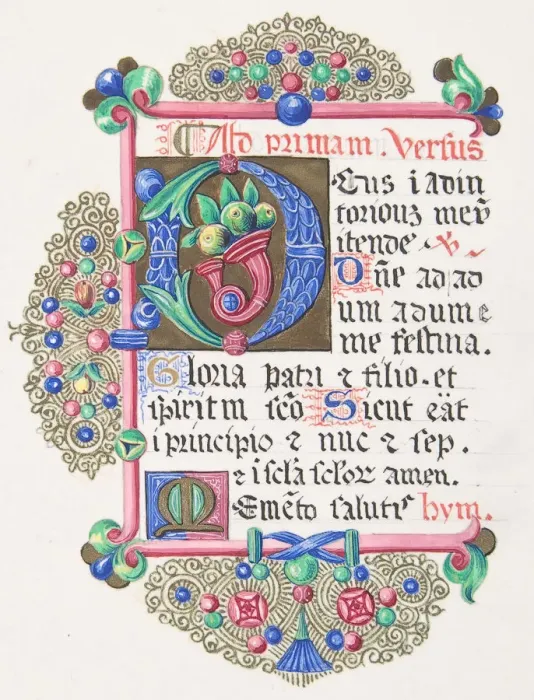 Ad primam. Versus
Deus i adiu
toriouz meū
itende ℣
Dñe ad ad
um adume
me festina.
Gloria patri ⁊ filio. et
spiritm scō Sicut eāt
i principio ⁊ nuc ⁊ sep.
⁊ i sclā sclor amen.
Memēto salutis hym.